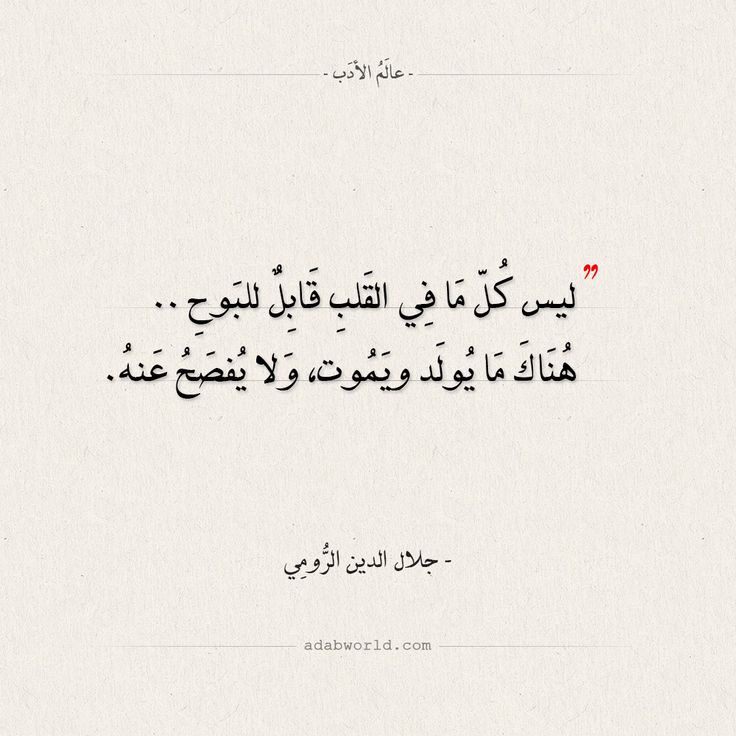 - عالَمُ الأَدَب -
” ليس كُلّ مَا فِي القَلبِ قَابِلٌ للبَوحِ ..
هُنَاكَ مَا يُولَد ويَمُوت، وَلا يُفصَحُ عَنهُ.
- جلال الدين الرُّومِي
adabworld.com